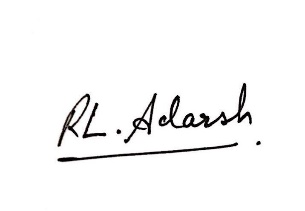 RL. Adarsh.